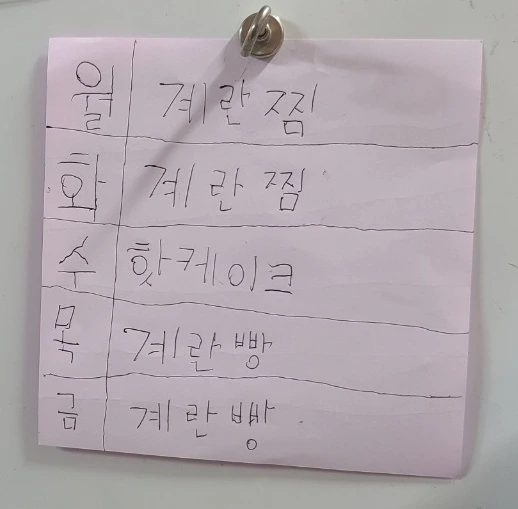 월 계란찜
화 계란찜
수 핫케이크
목 계란빵
금 계란빵